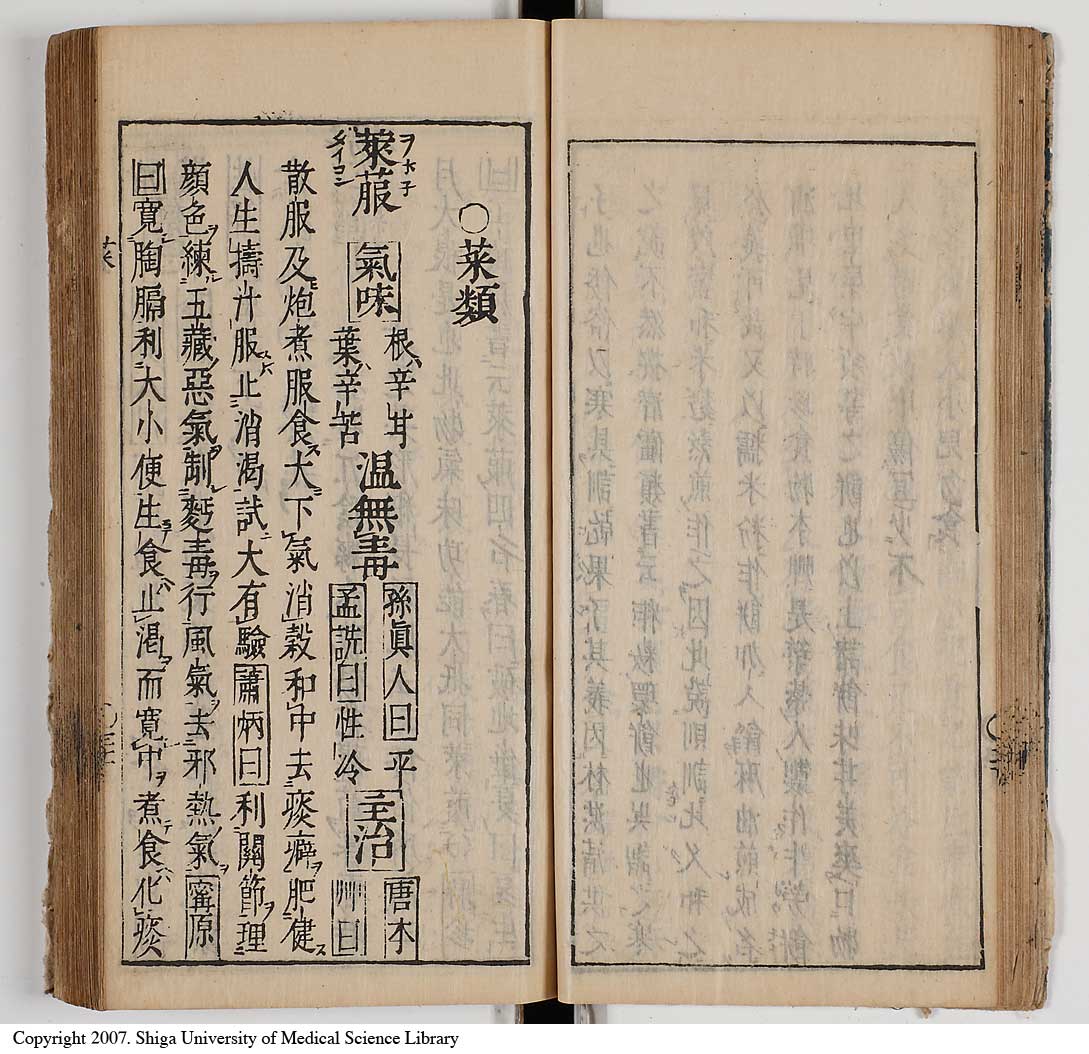 ○菜類
萊菔 ヲホ子 氣味 根辛甘 葉辛苦 温無毒 孫眞人曰平 孟詵曰性冷 主治 唐本艸曰
散服及炮煮服食大下氣消穀和中去痰癖肥健
人生擣汁服止消渴試大有驗蕭炳曰利關節理
顔色練五藏惡氣制麪毒行風氣去邪熱氣寗原
曰寛胸膈利大小便生食止渇而寛中煮食化痰
菜
Copyright 2007. Shiga University of Medical Science Library